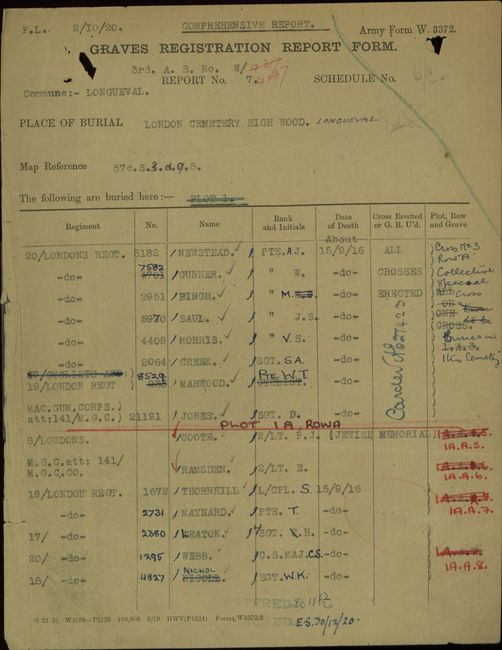 P.L. 2/10/20. COMPREHENSIVE REPORT. Army Form W. 3372.
GRAVES REGISTRATION REPORT FORM.
3rd. A. S. No. W/
REPORT No. 7. SCHEDULE No. 6C.
Commune:- LONGUEVAL.
PLACE OF BURIAL LONDON CEMETERY HIGH WOOD. LONGUEVAL
Map Reference 57c.S.3.d.9.5.
The following are buried here:— PLOT 1.
Regiment No. Name Rank and Initials Date of Death Cross Erected or G. R. U'd. Plot, Row and Grave
About
20/LONDONS REGT. 5182 NEWSTEAD. PTE. A.J. 15/9/16 ALL Cross No 3 Row A
-do- 7582 GUNNER. " W. -do- CROSSES Collective
-do- 2951 BINGH. " M. -do- ERECTED Special Cross
-do- 5970 SAUL. " J.S. -do-
-do- 4408 MORRIS. " V.S. -do- Buried in
-do- 2064 CREEK. SGT. S.A. -do- this Cemetery
19/LONDON REGT 8529 MARWOOD. Pte W.T. -do-
MAC.GUN.CORPS.)
att:141/M.G.C.) 21191 JONES. SGT. D. -do-
PLOT 1A, ROW A
8/LONDONS. COOTE. 2/LT. P.J. (JEWISH MEMORIAL) 1A.A.5.
M.G.C.att: 141/
M.G.C.CO. RAMSDEN. 2/LT. E. 1A.A.6.
19/LONDON REGT. 1672 THORNHILL L/CPL. S. 15/9/16
-do- 2731 MAYNARD. PTE. T. -do- 1A.A.7.
17/ -do- 2380 EATON. SGT. H. -do-
20/ -do- 1295 WEBB. C.S.MAJ. C.S. -do- 1A.A.8.
18/ -do- 4827 NICHOL SGT. W.K. -do-
E.S. 30/12/20.